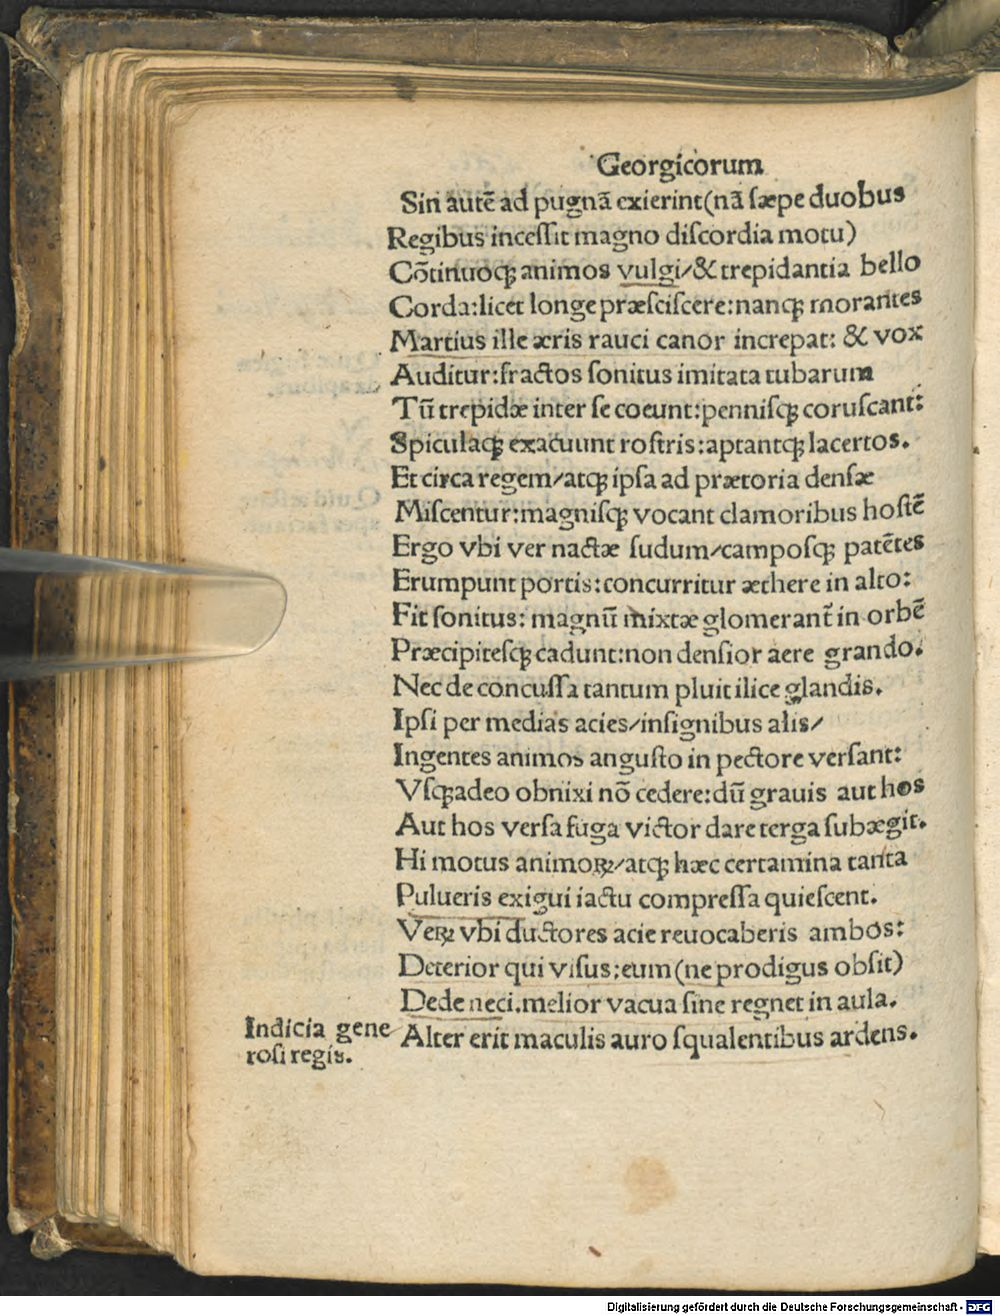 Georgicorum
Sin autē ad pugnā exierint(nā ſæpe duobus
Regibus inceſſit magno diſcordia motu)
Cōtinuoqꝫ animos vulgi/& trepidantia bello
Corda:licet longe præſciſcere:nanqꝫ morantes
Martius ille æris rauci canor increpat: & vox
Auditur:fractos ſonitus imitata tubarum
Tū trepidæ inter ſe coeunt:penniſqꝫ coruſcant:
Spiculaqꝫ exacuunt roſtris:aptantqꝫ lacertos.
Et circa regem/atqꝫ ipſa ad prætoria denſæ
Miſcentur:magniſqꝫ vocant clamoribus hoſtē
Ergo vbi ver nactæ ſudum/campoſqꝫ patētes
Erumpunt portis:concurritur æthere in alto:
Fit ſonitus: magnū mixtæ glomerant̄ in orbē
Præcipiteſqꝫ cadunt:non denſior aere grando.
Nec de concuſſa tantum pluit ilice glandis.
Ipſi per medias acies/inſignibus alis/
Ingentes animos anguſto in pectore verſant:
Vſqꝫadeo obnixi nō cedere:dū grauis aut hos
Aut hos verſa fuga victor dare terga ſubægit.
Hi motus animoꝝ/atqꝫ hæc certamina tanta
Pulueris exigui iactu compreſſa quieſcent.
Veꝝ vbi ductores acie reuocaberis ambos:
Deterior qui viſus:eum(ne prodigus obſit)
Dede neci.melior vacua ſine regnet in aula.
Indicia gene
roſi regis.
Alter erit maculis auro ſqualentibus ardens.
Digitalisierung gefördert durch die Deutsche Forschungsgemeinschaft - DFG